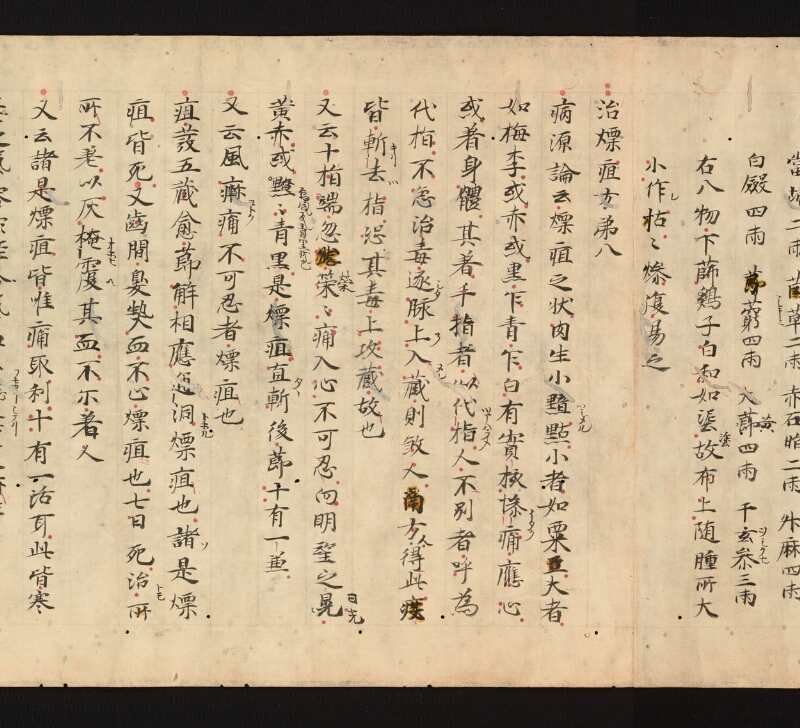 二兩 草二兩 赤石脂二兩 升麻四兩
白蘞四兩 芎藭四兩 大黃四兩 干玄參三兩
右八物下篩鷄子白和如埿故布上随腫所大
小作枯〻燥復易之
治熛疽方弟八
病源論云熛疽之状肉生小黯點小者如粟豆大者
如梅李或赤或黒乍青乍白有實核慘痛應心
或著身體其著手指者似代指人不別者呼為
代指不急治毒逐脉上入蔵則煞人南方人得此疾
皆斬去指恐其毒上攻蔵故也
又云十指端忽 榮〻痛入心不可忍向明望之晃
黄赤或黯〻青黒是熛疽直斬後莭十有一
又云風 痛不可忍者熛疽也
疽發五蔵俞莭解相應通洞熛疽也諸是熛
疽皆死又齒間臭 血不心熛疽也七日死治所
所不差以灰掩覆其血不尓着人
又云諸是熛疽皆唯痛取利十有一活耳此皆寒